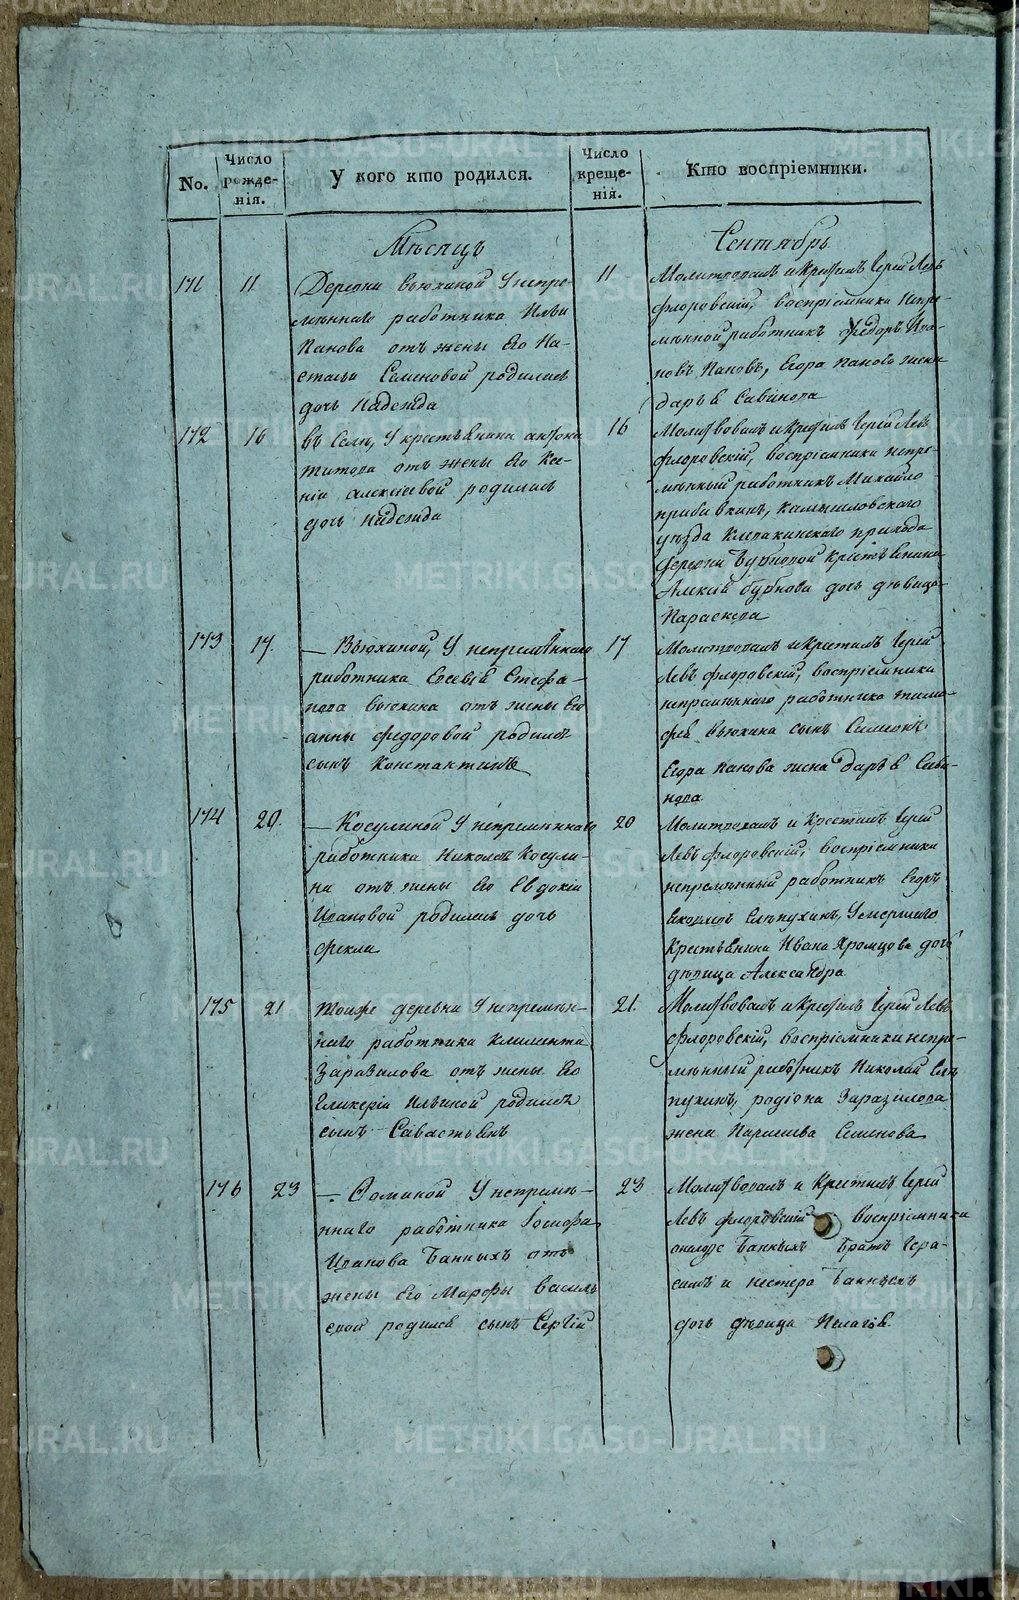 No.
Число рожде-нія.
У кого кто родился.
Число креще-нія.
Кто воспріемники.
Мѣсяцъ
Сентябрь
171
11
Деревни Вьюхиной У непре-
мѣннаго работника Ильи
Панова отъ жены Его На-
стасьи Семеновой родилась
дочь Надежда
11
Молитвовалъ и Крестилъ Іерей Левъ
Флоровскій, воспріемники непре-
мѣнной работникъ Федоръ Ива-
новъ Пановъ, Егора Панова жена
Дарья Савинова
172
16
въ Селѣ, У крестьянина
Титова отъ жены Его Ксе-
ніи Алексіевой родилась
дочь Надежда
16
Молитвовалъ и Крестилъ Іерей Левъ
Флоровскій, воспріемники непре-
мѣнный работникъ Михайло
Камышловскаго
уѣзда Клевакинскаго прихода
деревни Бубновой Крестьянина
Алексія Бубнова дочь дѣвица
Параскева
173
17.
— Вьюхиной, У непремѣннаго
работника Евсевія Стефа-
нова Вьюхина отъ жены Его
Анны Федоровой родился
сынъ Константинъ
17
Молитвовалъ и Крестилъ Іерей
Левъ Флоровскій, воспріемники
непремѣннаго работника Тимо-
фея Вьюхина сынъ Симеонъ
Егора Панова жена Дарья Сави-
нова
174
20.
— Косулиной У непремѣннаго
работника Николая Косули-
на отъ жены Его Евдокіи
Ивановой родилась дочь
Фекла
20
Молитвовалъ и Крестилъ Іерей
Левъ Флоровскій, воспріемники
непремѣнный работникъ Егоръ
Елѣпухинъ, Умершаго
Крестьянина Ивана Хромцова дочь
дѣвица Александра
175
21
Тойже деревни У непремѣн-
наго работника Климента
Заразилова отъ жены Его
Гликеріи Ильиной родился
сынъ Савастьянъ
21.
Молитвовалъ и Крестилъ Іерей Левъ
Флоровскій, воспріемники непре-
мѣнный работникъ Николай Елѣ-
пухинъ, Родіона Заразилова
жена Парасковья Семенова
176
23
— Фоминой У непремѣ-
ннаго работника Іосифа
Иванова Банныхъ отъ
жены Его Марфы Василь
евой родился сынъ Сергій
23
Молитвовалъ и Крестилъ Іерей
Левъ Флоровскій воспріемники
онагоже Банныхъ братъ Гера-
симъ и Нестера Банныхъ
дочь дѣвица Пелагея.
METRIKI.GASO-URAL.RU